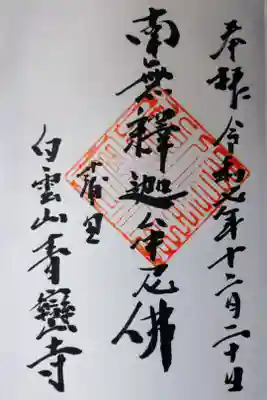 奉拝 令和元年十二月二十日
南無釋迦牟尼佛
白雲山青巒寺